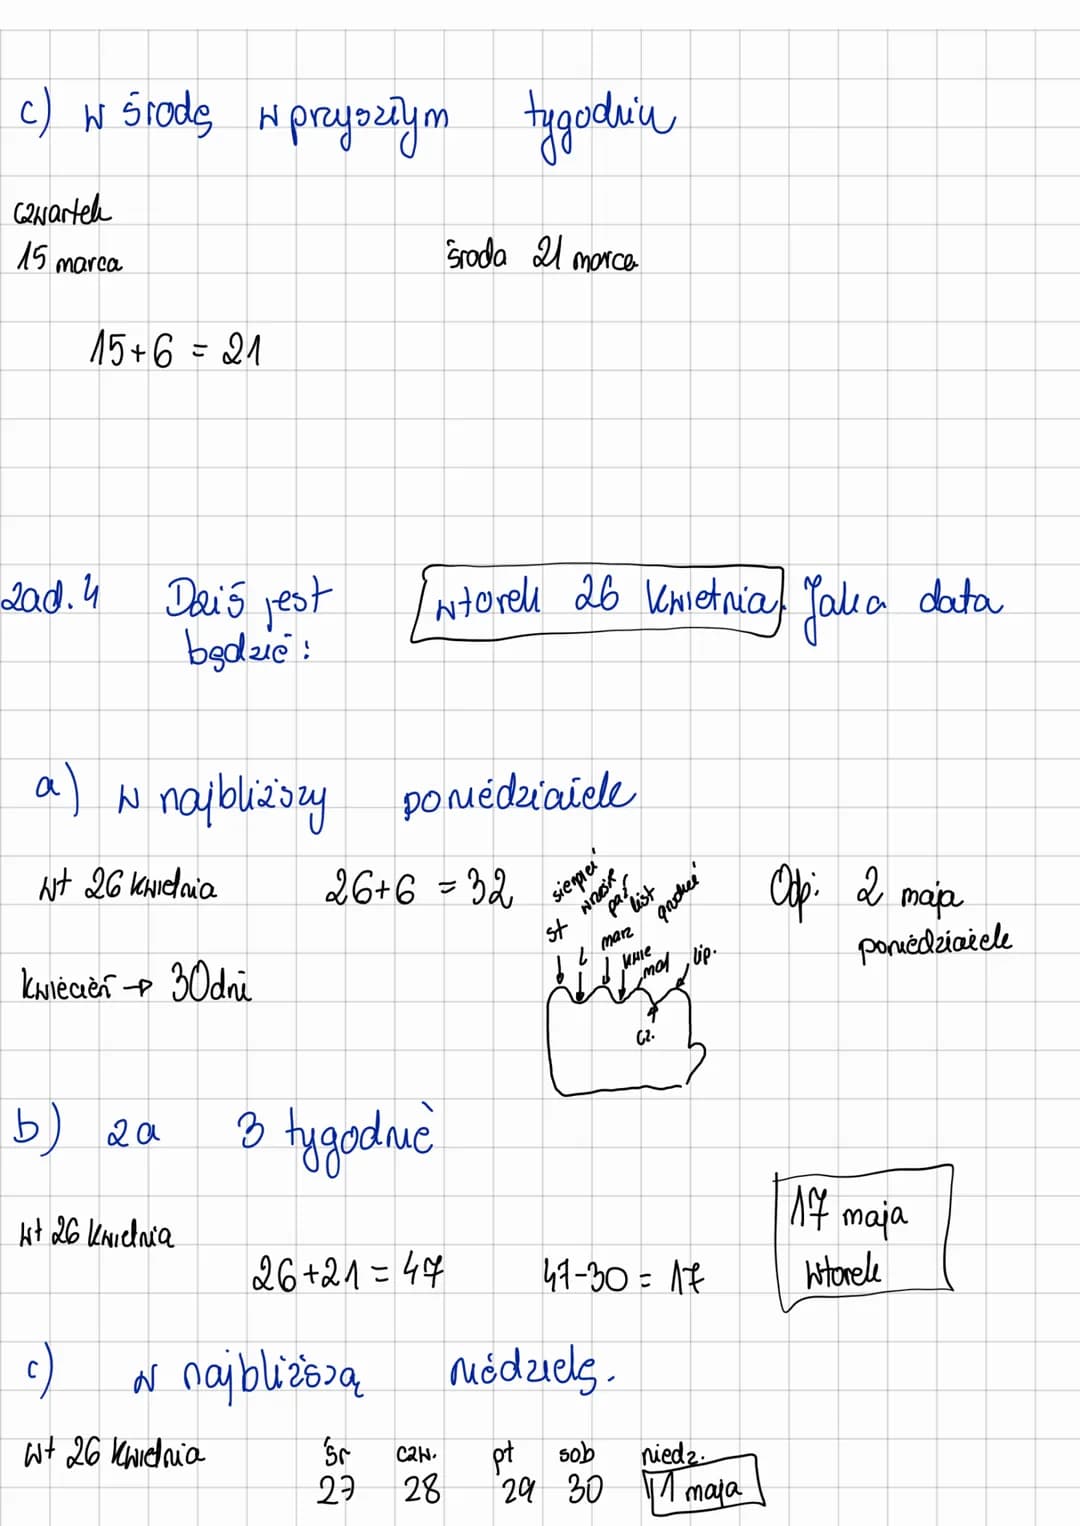 c) w środę w przyszłym tygodniu
czwartek
15 marca
środa 21 marca
15+6 = 21
zad. 4 Dziś jest wtorek 26 kwietnia. Jaka data
będzie:
a) w najbliższy poniedziałek
wt 26 kwietnia 26+6 = 32
kwiecień → 30 dni
sierpień
wrześ
paź
list
grudzień
st
l
marz
kwie
maj
cz.
lip.
Odp: 2 maja
poniedziałek
b) za 3 tygodnie
wt 26 kwietnia
26+21 = 47 47-30 = 17
17 maja
wtorek
c) w najbliższą niedzielę.
wt 26 kwietnia śr czw. pt sob niedz.
27 28 29 30 1 maja